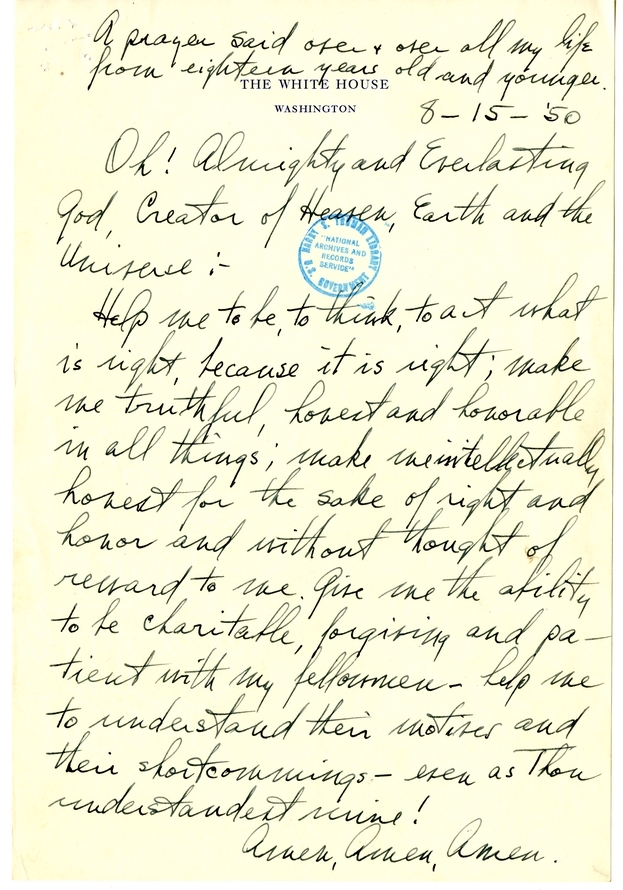 A prayer said over & over all my life
from eighteen years old and younger.
THE WHITE HOUSE
WASHINGTON
8-15-'50
Oh! Almighty and Everlasting
God, Creator of Heaven, Earth and the
Universe:-
HARRY S. TRUMAN LIBRARY
"NATIONAL
ARCHIVES AND
RECORDS
SERVICE"
U.S. GOVERNMENT
Help me to be, to think, to act what
is right, because it is right; make
me truthful, honest and honorable
in all things; make me intellectually
honest for the sake of right and
honor and without thought of
reward to me. Give me the ability
to be charitable, forgiving and pa-
tient with my fellowmen - help me
to understand their motives and
their shortcommings - even as Thou
understandest mine!
Amen, Amen, Amen.